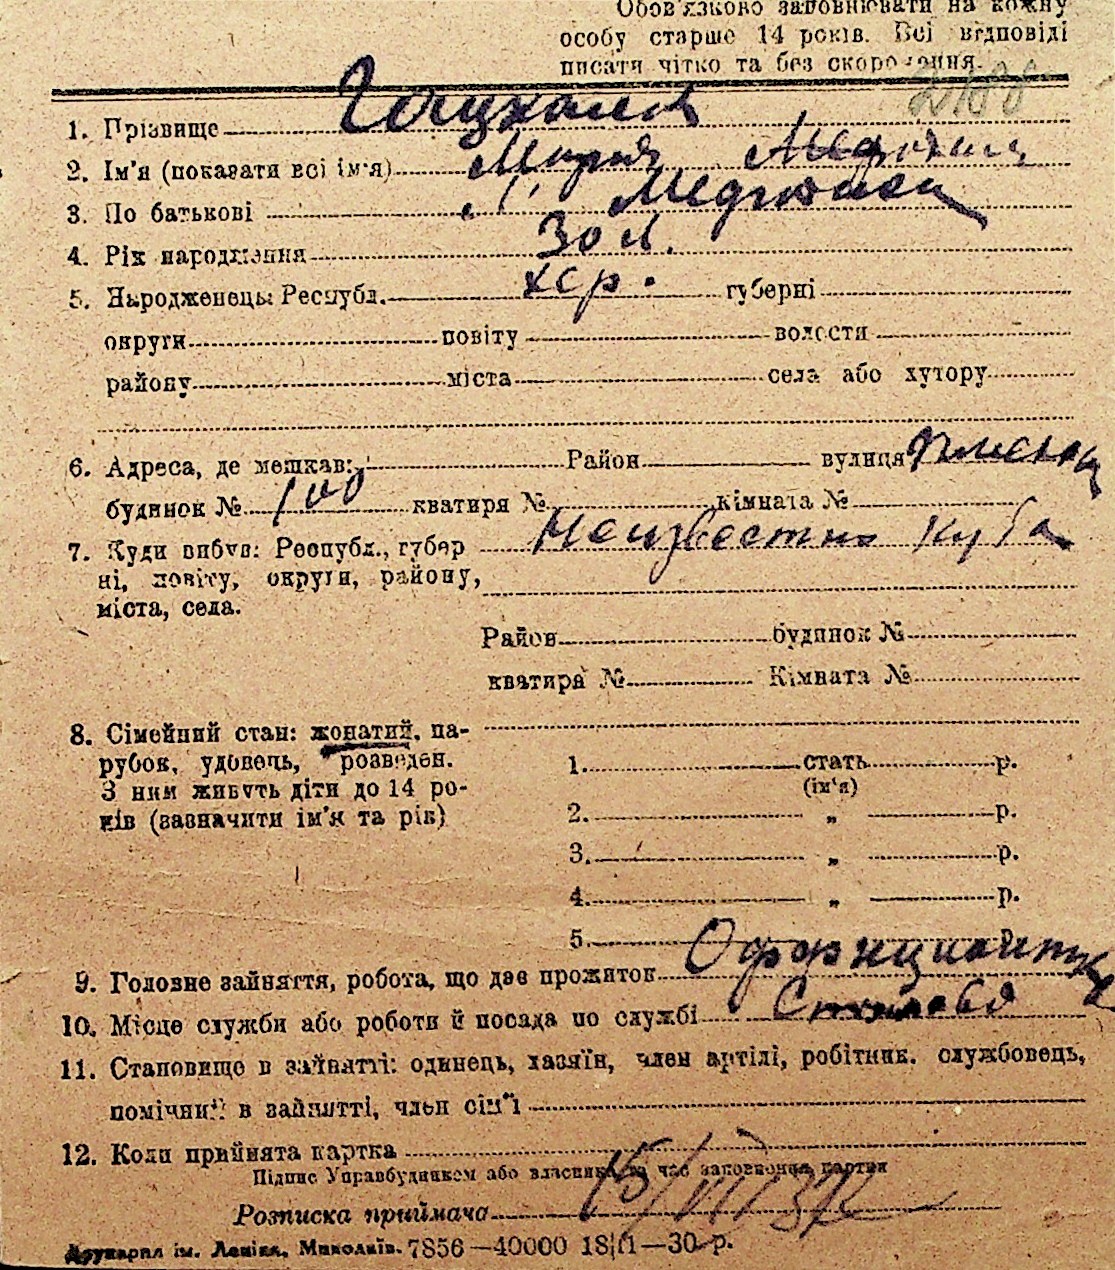 Обов'язково заповнювати на кожну
особу старше 14 років. Всі відповіді
писати чітко та без скорочення.
1. Прізвище
2. Ім'я (показати всі ім'я) Мария
3. По батькові
4. Рік народження 30 л.
5. Народженець: Республ. хер. губерні
округи повіту волости
району міста села або хутору
6. Адреса, де мешкав: Район вулиця
будинок № 100 кватиря № кімната №
7. Куди вибув: Республ., губер
ні, повіту, округи, району,
міста, села.
Неизвестно куда
Район будинок №
кватиря № Кімната №
8. Сімейний стан: жонатий, па-
рубок, удовець, розведен.
З ним живуть діти до 14 ро-
ків (зазначити ім'я та рік)
1. стать р.
(ім'я)
2. „ р.
3. „ р.
4. „ р.
5.
9. Головне зайняття, робота, що дає прожиток Оффициантка
10. Місце служби або роботи й посада по службі Столовая
11. Становище в зайнятті: одинець, хазяїн, член артілі, робітник, службовець,
помічний в зайнятті, член сім'ї
12. Коли прийнята картка
Підпис Управбудинком або власника за час заповнення картки
15/VIII 32
Розписка приймача
Друкарня ім. Леніна, Миколаїв. 7856—40000 18|II—30 р.